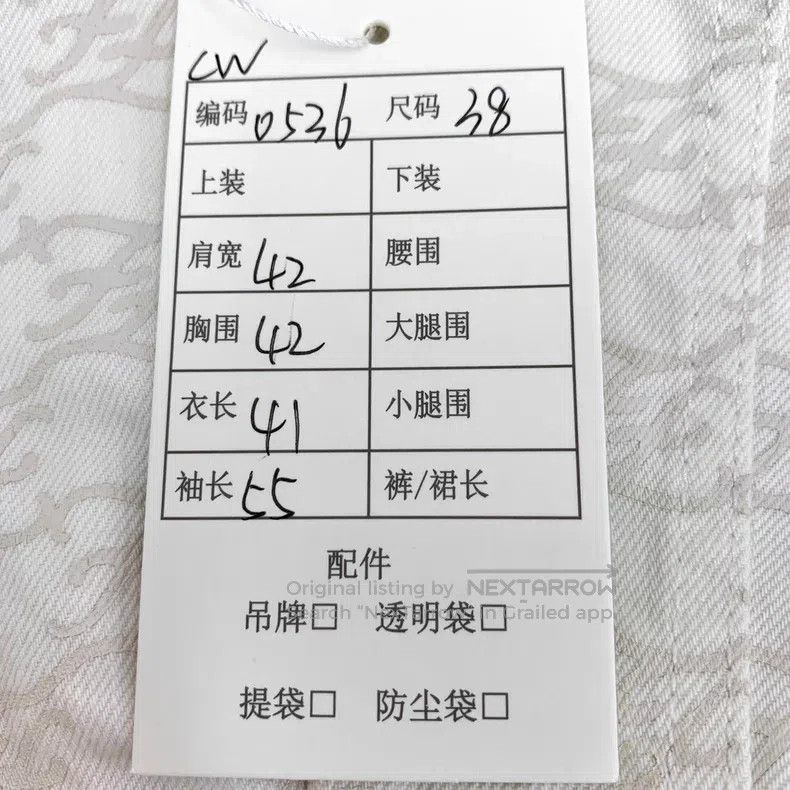 CW
编码 0536 尺码 38
上装 下装
肩宽 42 腰围
胸围 42 大腿围
衣长 41 小腿围
袖长 55 裤/裙长
配件
Original listing by NEXTARROW
吊牌□ 透明袋□
in Grailed app.
提袋□ 防尘袋□